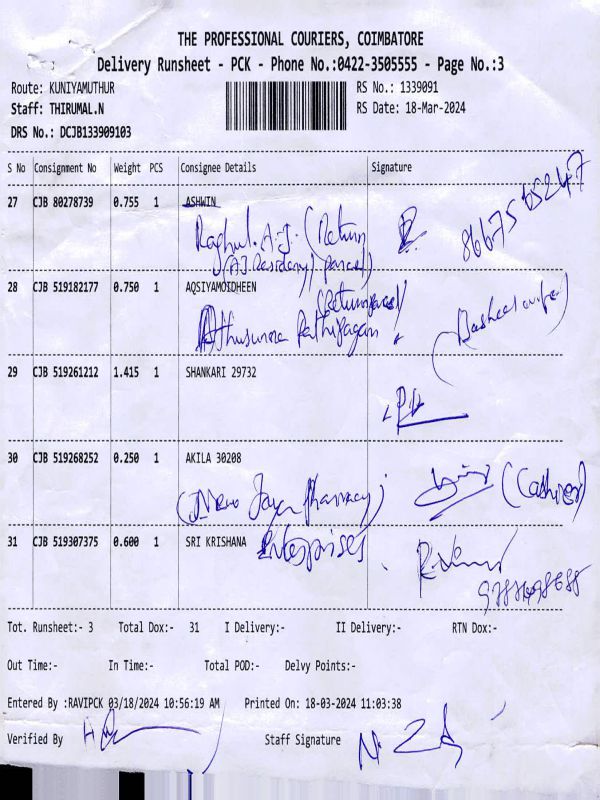 THE PROFESSIONAL COURIERS, COIMBATORE
Delivery Runsheet - PCK - Phone No.:0422-3505555 - Page No.:3
Route: KUNIYAMUTHUR RS No.: 1339091
Staff: THIRUMAL.N RS Date: 18-Mar-2024
DRS No.: DCJB133909103
S No Consignment No Weight PCS Consignee Details Signature
27 CJB 80278739 0.755 1 ASHWIN
Raghul. A.J. (Return
(A.J. Residency) parcel)
28 CJB 519182177 0.750 1 AQSIYAMOIDHEEN
(Return parcel)
29 CJB 519261212 1.415 1 SHANKARI 29732
30 CJB 519268252 0.250 1 AKILA 30208
(New Jaya Pharmacy) (Cashier)
31 CJB 519307375 0.600 1 SRI KRISHANA Enterprises.
Tot. Runsheet:- 3 Total Dox:- 31 I Delivery:- II Delivery:- RTN Dox:-
Out Time:- In Time:- Total POD:- Delvy Points:-
Entered By :RAVIPCK 03/18/2024 10:56:19 AM Printed On: 18-03-2024 11:03:38
Verified By Staff Signature